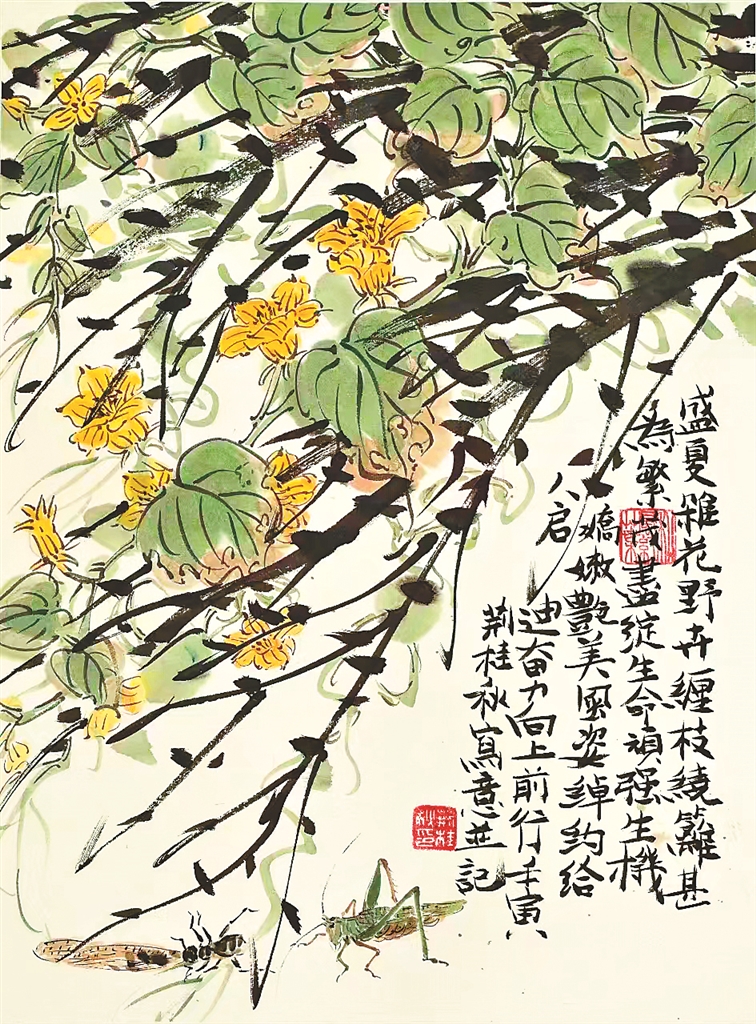 盛夏雜花野卉纏枝繞籬甚
為繁茂盡綻生命頑强生機
嬌嫩艷美風姿綽約給
人启迪奮力向上前行壬寅
荆桂秋寫意並記